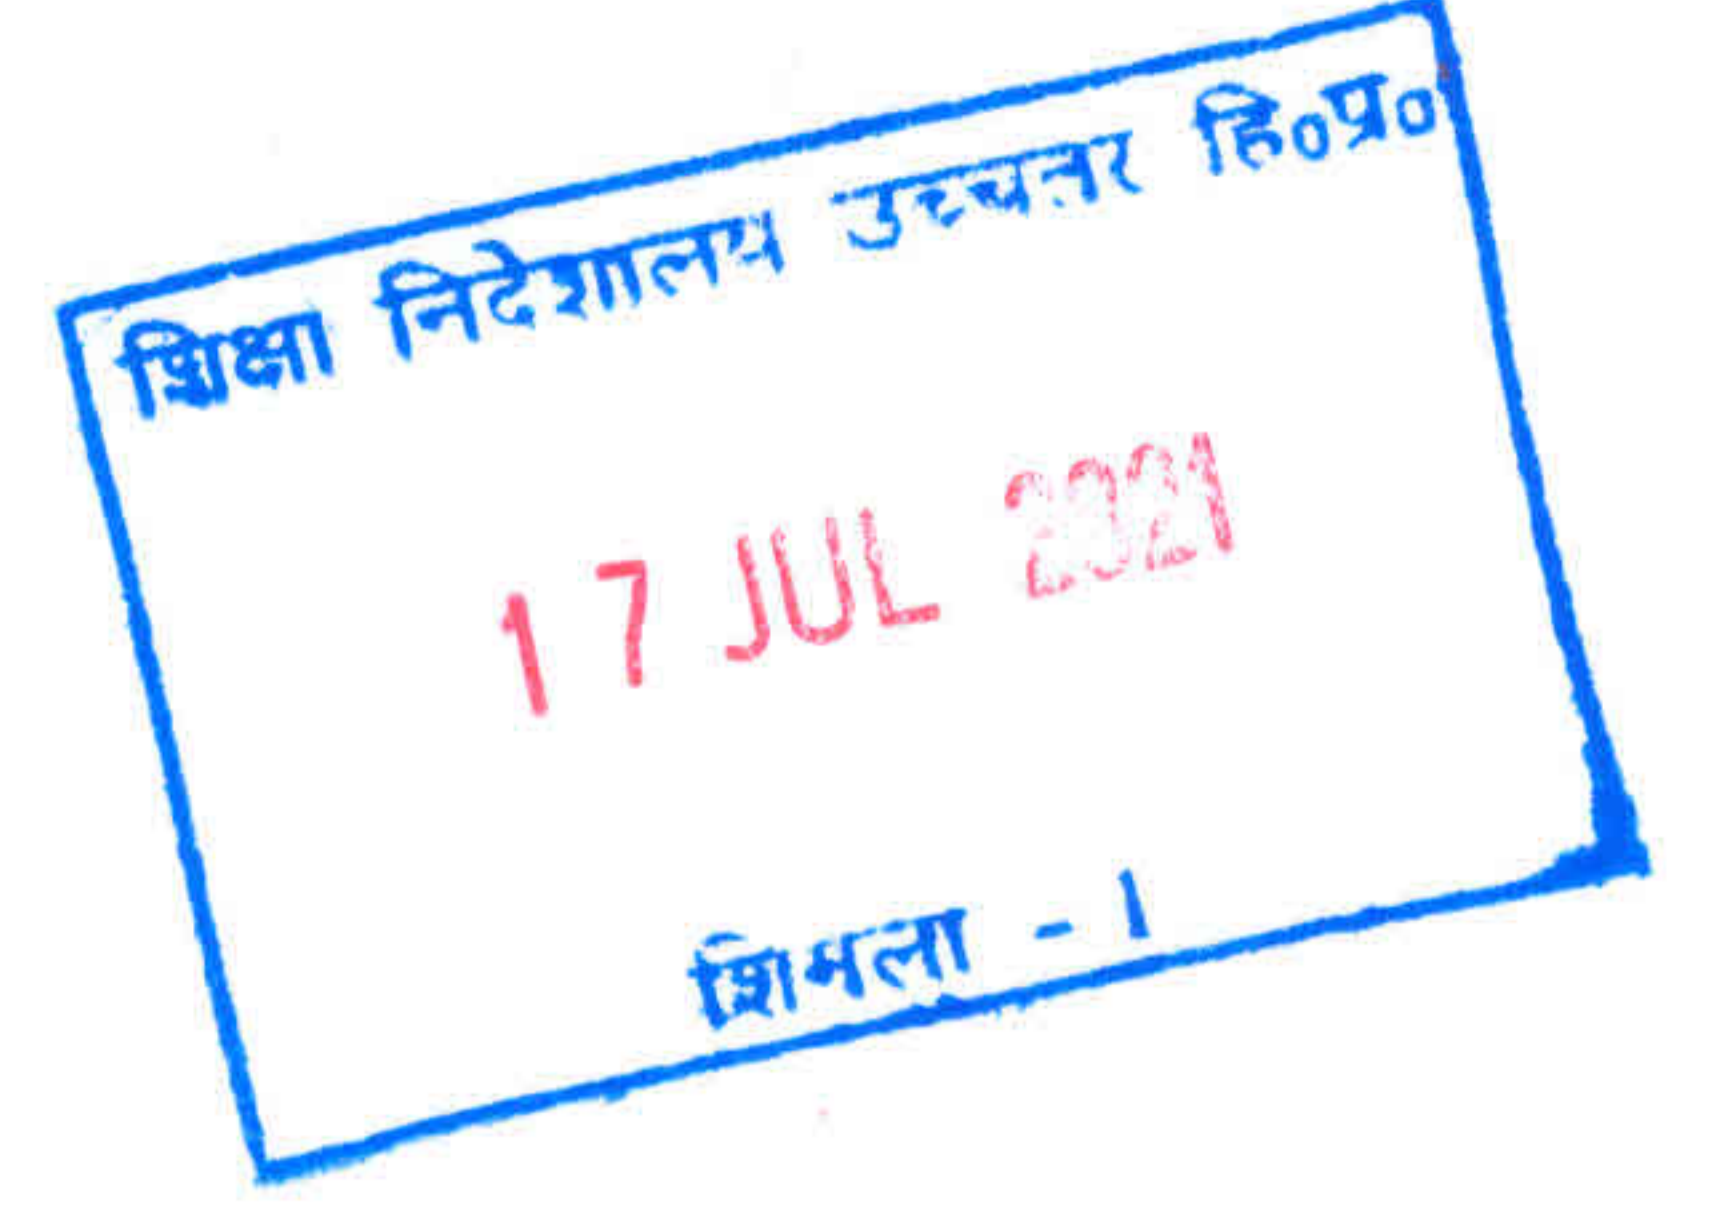 शिक्षा निदेशालय उच्चतर हि०प्र०
17 JUL 2021
शिमला - 1